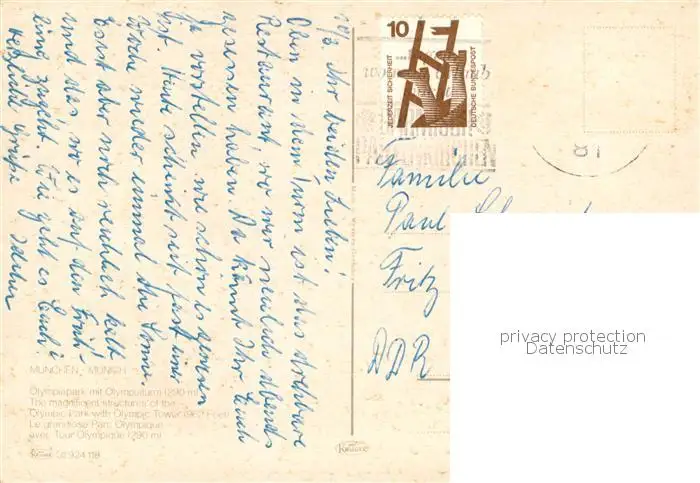 20/5 Ihr beiden Lieben!
Oben in dem Turm ist das drehbare
Restaurant, wo wir neulich abends
gesessen haben. Da könnt Ihr Euch
ja vorstellen wie schön es gewesen
ist. Heute scheint seit fast einer
Woche wieder einmal die Sonne.
Es ist aber noch reichlich kalt
und das wo es auf den Früh-
ling zugeht. Wie geht es Euch?
Herzliche Grüße
10
JEDERZEIT SICHERHEIT
DEUTSCHE BUNDESPOST
Familie
Paul
Fritz
DDR
MÜNCHEN - MUNICH
Olympiapark mit Olympiaturm (290 m)
The magnificent structures of the
Olympic Park with Olympic Tower
Le grandiose Parc Olympique
avec Tour Olympique (290 m)
Krüger 924 118
Krüger
privacy protection
Datenschutz